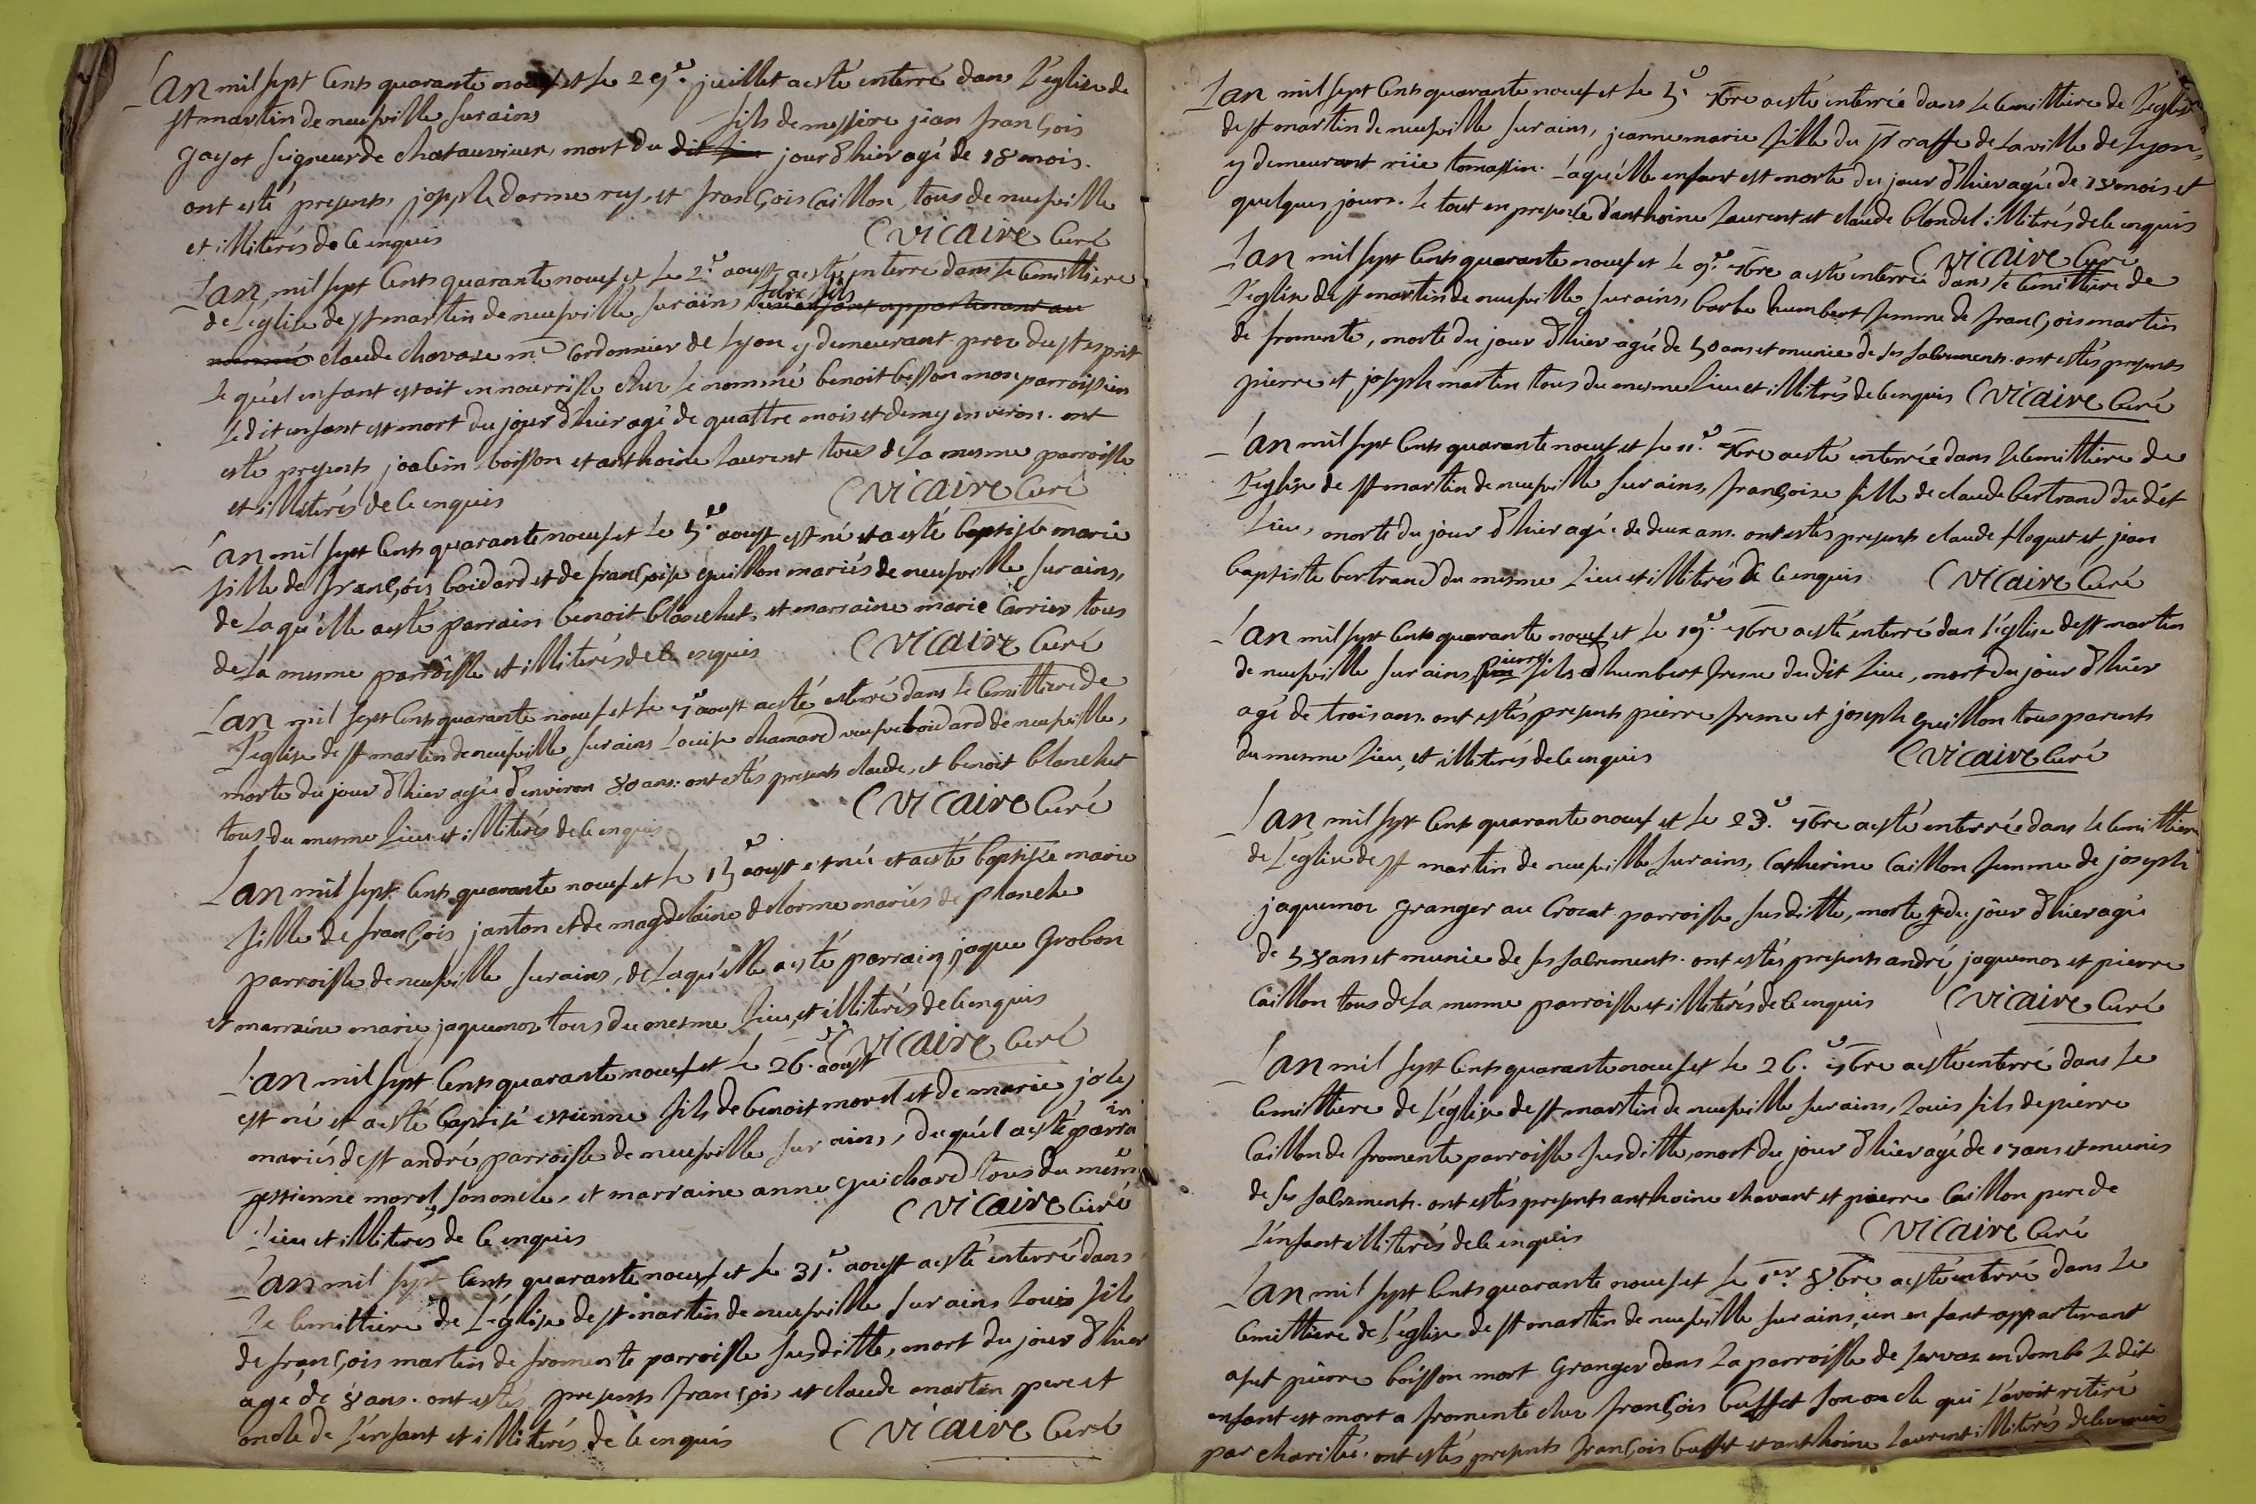 L'an mil sept cents quarante neuf et le 29e. juillet a esté enterré dans l'eglise de
st martin de neufville sur ains fils de messire jean françois
gayot seigneur de chatauvieux, mort du jour d'hier agé de 18 mois.
ont esté presents, joseph darme rey, et françois Caillon, tous de neufville
et illiterés de ce enquis C vicaire Curé
L'an mil sept cents quarante neuf et le 2e. aoust a esté enterré dans le cemittiere
de l'eglise de st martin de neufville sur ains fils un enfant appartenant au
nommé claude chavase me Cordonnier de Lyon y demeurant prez du st esprit
le quel enfant estoit en nourrisse chez le nommé benoit besson mon parroissien
Le dit enfant est mort du jour d'hier agé de quattre mois et demy environ. ont
esté presents joachim boisson et anthoine Laurent tous de la mesme parroisse
et illiterés de ce enquis C vicaire Curé
L'an mil sept cents quarante neuf et le 5e. aoust est né et a esté baptisée marie
fille de françois boidard et de françoise guillon mariés de neufville sur ains,
de laquelle a esté parrain benoit blanchet, et marraine marie Carrier tous
de la mesme parroisse et illiterés de ce enquis C vicaire Curé
L'an mil sept cents quarante neuf et le 7e aoust a esté enterré dans le Cemittiere de
l'eglise de st martin de neufville sur ains Louise chamard veufve boidard de neufville,
morte du jour d'hier agée d'environ 80 ans. ont estés presents claude, et benoit blanchet
tous du mesme lieu et illiterés de ce enquis C vicaire Curé
L'an mil sept cents quarante neuf et le 15e aoust est née et a esté baptisée marie
fille de françois janton et de magdelaine delorme mariés de planche
parroisse de neufville sur ains, de laquelle a esté parrain jaque Grobon
et marraine marie jaquemoz tous du mesme lieu, et illiterés de ce enquis
C vicaire Curé
L'an mil sept cents quarante neuf et le 26e. aoust
est né et a esté baptisé estienne fils de benoit morel et de marie joly
mariés de st andré parroisse de neufville sur ains, duquel a esté parrain
estienne morel son oncle, et marraine anne guichard tous du mesme
lieu et illiterés de ce enquis C vicaire Curé
L'an mil sept cents quarante neuf et le 31e. aoust a esté enterré dans
le cemittiere de l'eglise de st martin de neufville sur ains Louis fils
de françois martin de fromente parroisse susditte, mort du jour d'hier
agé de 8 ans. ont estés presents françois et claude martin pere et
oncle de l'enfant et illiterés de ce enquis C vicaire Curé
L'an mil sept cents quarante neuf et le 5e. 7bre a esté enterrée dans le cemittiere de l'eglise
de st martin de neufville sur ains, jeanne marie fille du sr raffe de la ville de Lyon,
y demeurant rüe tomassin. Laquelle enfant est morte du jour d'hier agée de 18 mois et
quelques jours. le tout en presence d'anthoine Laurent et claude blondel illiterés de ce enquis
C vicaire Curé
L'an mil sept cents quarante neuf et le 9e. 7bre a esté enterrée dans le cemittiere de
l'eglise de st martin de neufville sur ains, barbe humbert femme de françois martin
de fromente, morte du jour d'hier agée de 50 ans et munie de ses sacrements. ont estés presents
pierre et joseph martin tous du mesme lieu et illiterés de ce enquis C vicaire Curé
L'an mil sept cents quarante neuf et le 11e. 7bre a esté enterrée dans le cemittiere de
l'eglise de st martin de neufville sur ains, françoise fille de claude bertrand du dit
lieu, morte du jour d'hier agée de deux ans. ont estés presents claude floquet et jean
baptiste bertrand du mesme lieu et illiterés de ce enquis C vicaire Curé
L'an mil sept cents quarante neuf et le 19e. 7bre a esté enterré dans l'eglise de st martin
de neufville sur ains, pierre fils d'humbert frene du dit lieu, mort du jour d'hier
agé de trois ans. ont estés presents pierre frene et joseph guillon tous parents
du mesme lieu, et illiterés de ce enquis C vicaire Curé
L'an mil sept cents quarante neuf et le 23e. 7bre a esté enterrée dans le cemittiere
de l'eglise de st martin de neufville sur ains, Catherine Caillon femme de joseph
jaquemoz granger au Crozat parroisse susditte, morte du jour d'hier agée
de 58 ans et munie de ses sacrements. ont estés presents andré jaquemoz et pierre
Caillon tous de la mesme parroisse et illiterés de ce enquis C vicaire Curé
L'an mil sept cents quarante neuf et le 26e. 7bre a esté enterré dans le
cemittiere de l'eglise de st martin de neufville sur ains, Louis fils de pierre
Caillon de fromente parroisse susditte, mort du jour d'hier agé de 17 ans et munis
de ses sacrements. ont estés presents anthoine chavant et pierre Caillon pere de
l'enfant illiterés de ce enquis C vicaire Curé
L'an mil sept cents quarante neuf et le 1er. 8bre a esté enterré dans le
cemittiere de l'eglise de st martin de neufville sur ains, un enfant appartenant
a feu pierre boisson mort Granger dans la parroisse de servaz en dombe Le dit
enfant est mort a fromente chez françois buffet son oncle qui l'avoit retiré
par charité. ont estés presents françois buffet et anthoine Laurent illiterés de ce enquis